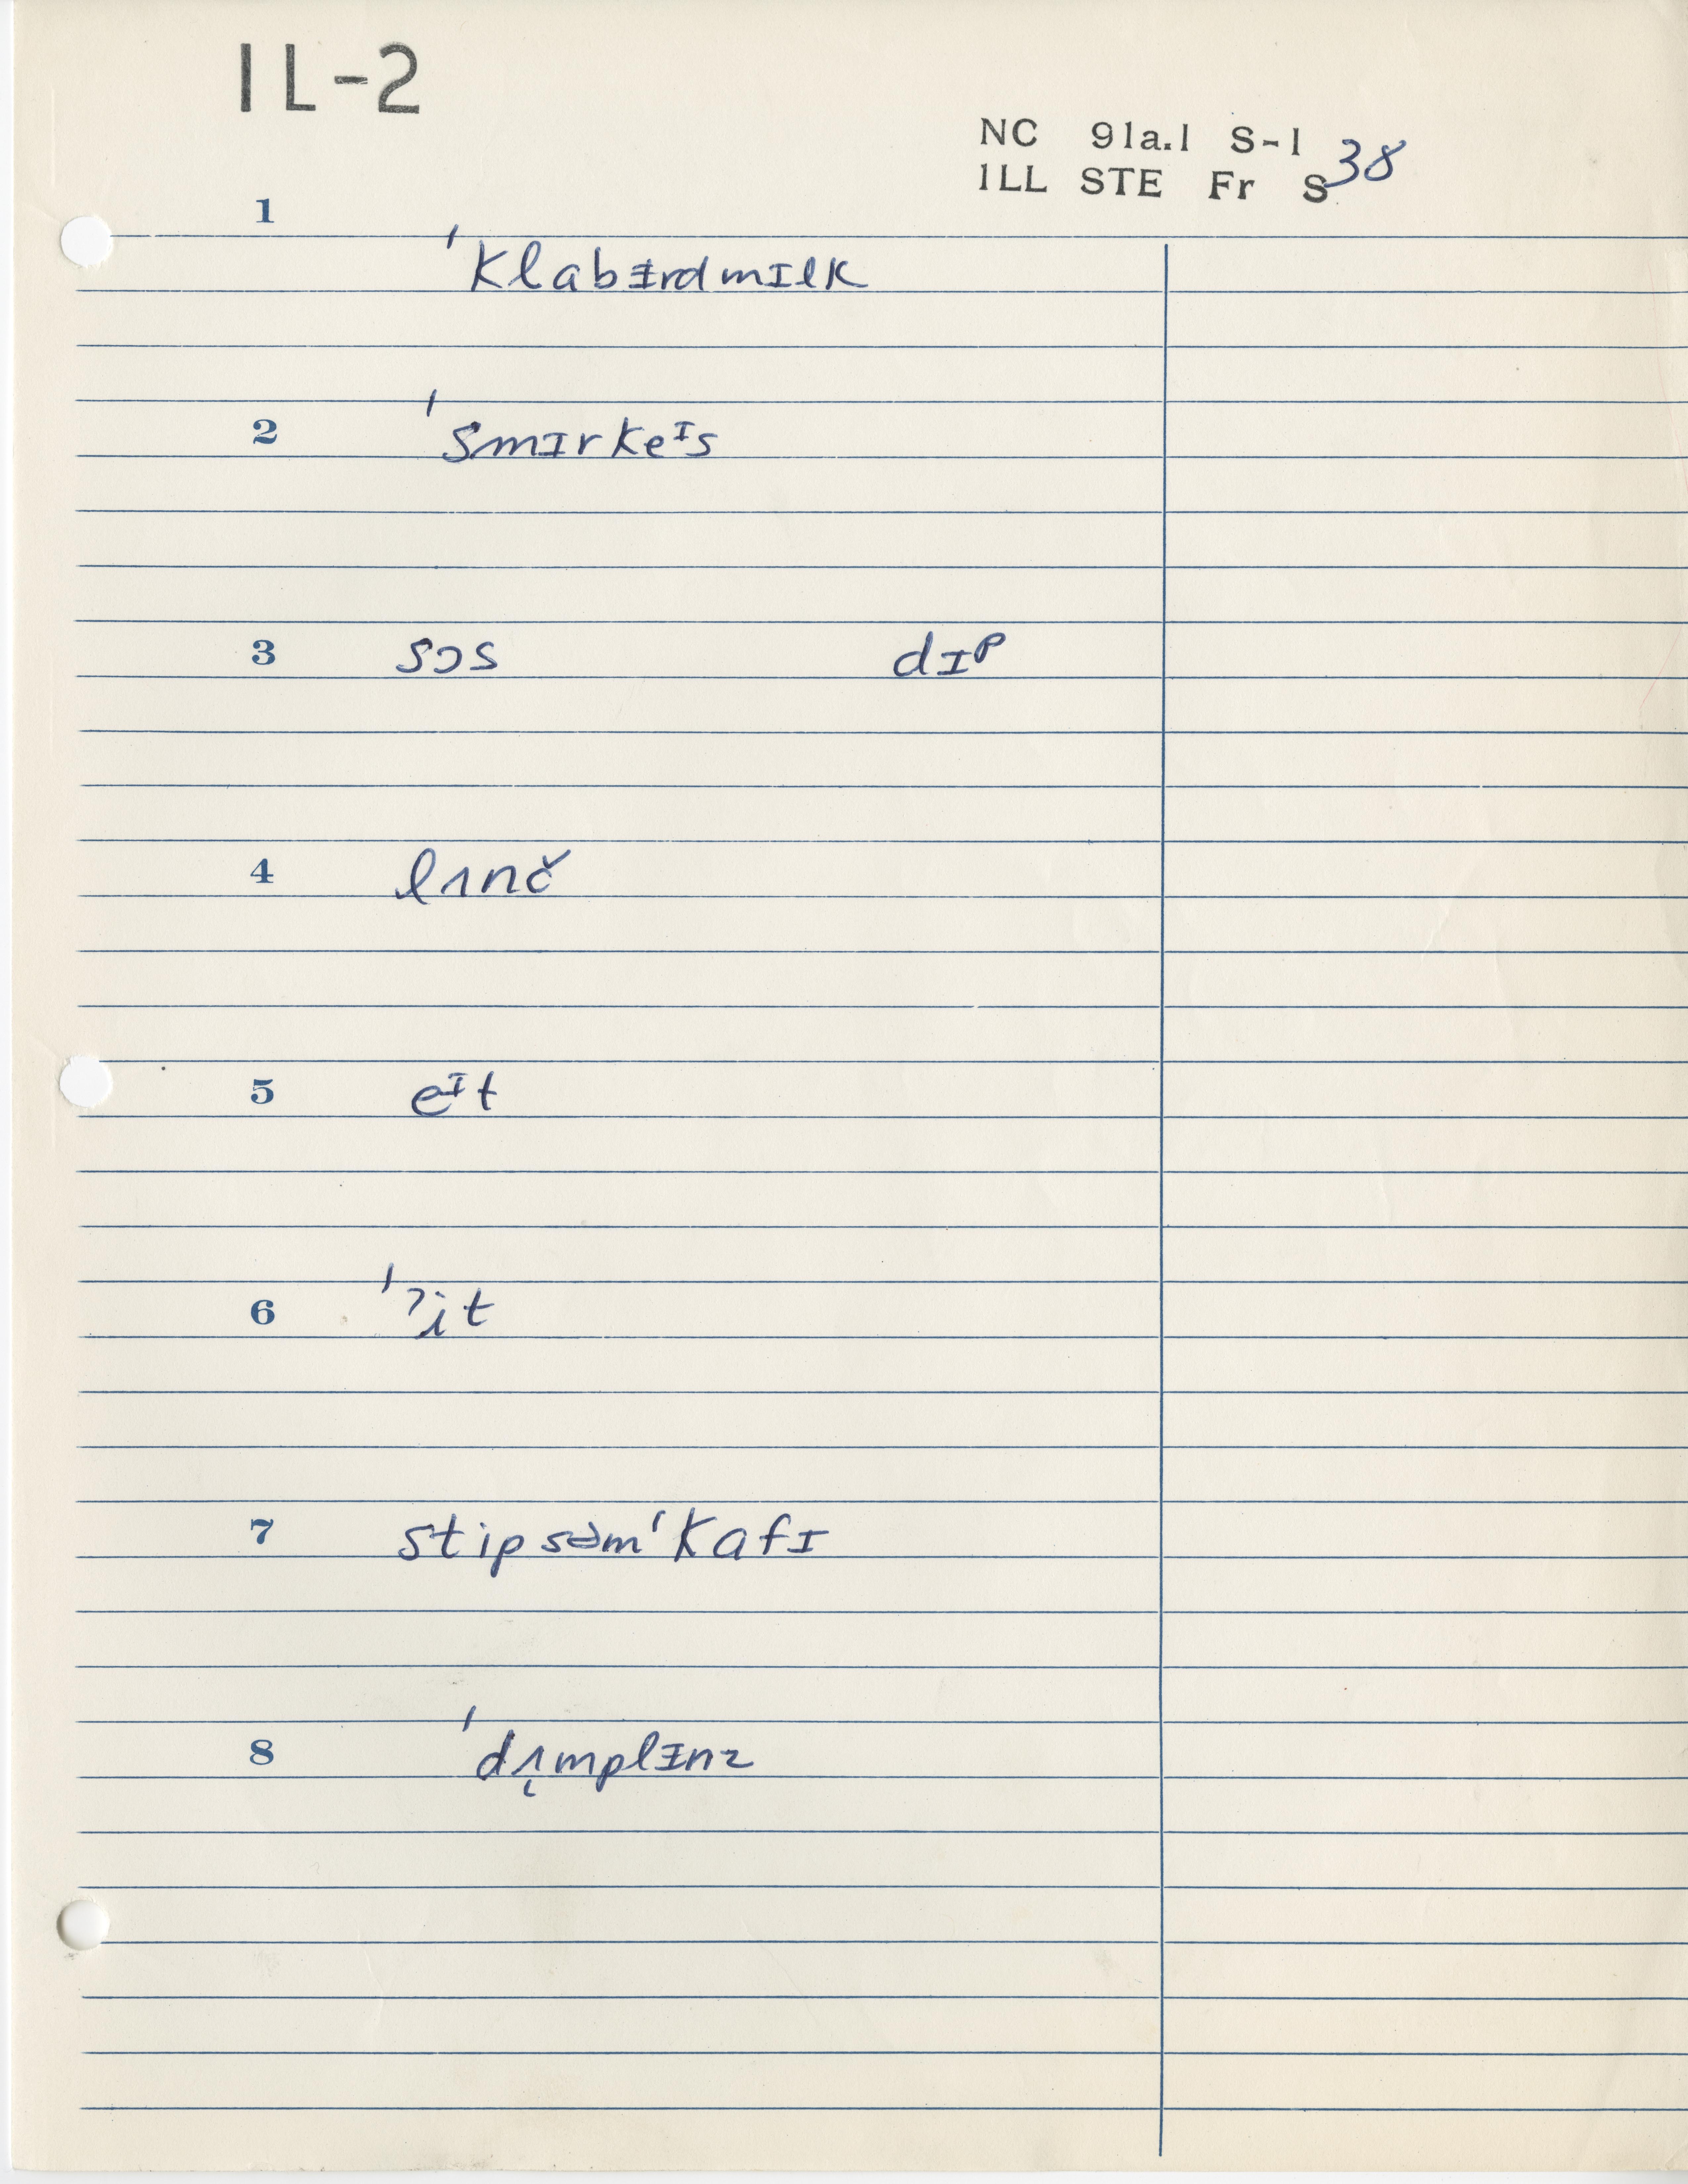 IL-2
NC 91a.1 S-1
ILL STE Fr S 38
1 ˈklabᵻrdmɪlk
2 ˈsmɪrkeᶦs
3 sɔs dɪp
4 lʌnč
5 eᶦt
6 ˈʔit
7 stipsəmˈkafɪ
8 ˈdʌ̨mplᵻnz